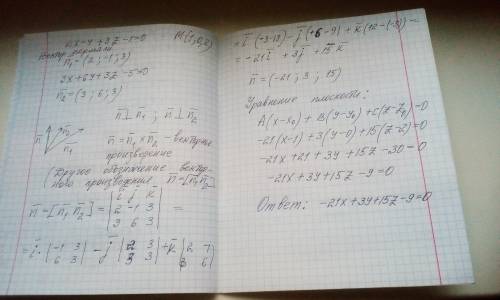 2x-y+3z-1=0 M(1,0,2)
вектор нормали
n̅₁=(2;-1;3)
3x+6y+3z-5=0
n̅₂=(3;6;3)
n̅⊥n̅₁ ; n̅⊥n̅₂
n̅ n̅₂ n̅₁
n̅=n̅₁×n̅₂ - векторное
произведение
(Другое обозначение вектор-
ного произведения n̅=[n̅₁n̅₂]
n̅=[n̅₁n̅₂]=| i̅ j̅ k̅ |
| 2 -1 3 | =
| 3 6 3 |
=i̅·|-1 3| -j̅|2 3| +k̅|2 -1|
|6 3| |3 3| |3 6|
=i̅(-3-18)-j̅(+6-9)+k̅(12-(-3))=
=-21i̅+3j̅+15k̅
n̅=(-21;3;15)
Уравнение плоскости:
A(x-x₀)+B(y-y₀)+C(z-z₀)=0
-21(x-1)+3(y-0)+15(z-2)=0
-21x+21+3y+15z-30=0
-21x+3y+15z-9=0
Ответ: -21x+3y+15z-9=0